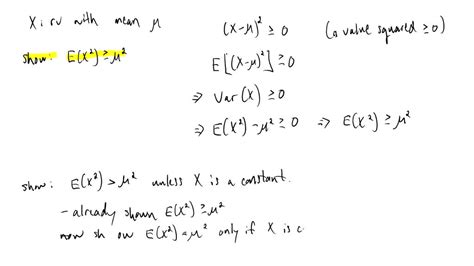 X: rv with mean μ
show: E(X²) ≥ μ²
(X-μ)² ≥ 0 (a value squared ≥ 0)
E[(X-μ)²] ≥ 0
⇒ Var(X) ≥ 0
⇒ E(X²) - μ² ≥ 0 ⇒ E(X²) ≥ μ²
show: E(X²) > μ² unless X is a constant.
- already shown E(X²) ≥ μ²
now show E(X²) = μ² only if X is c